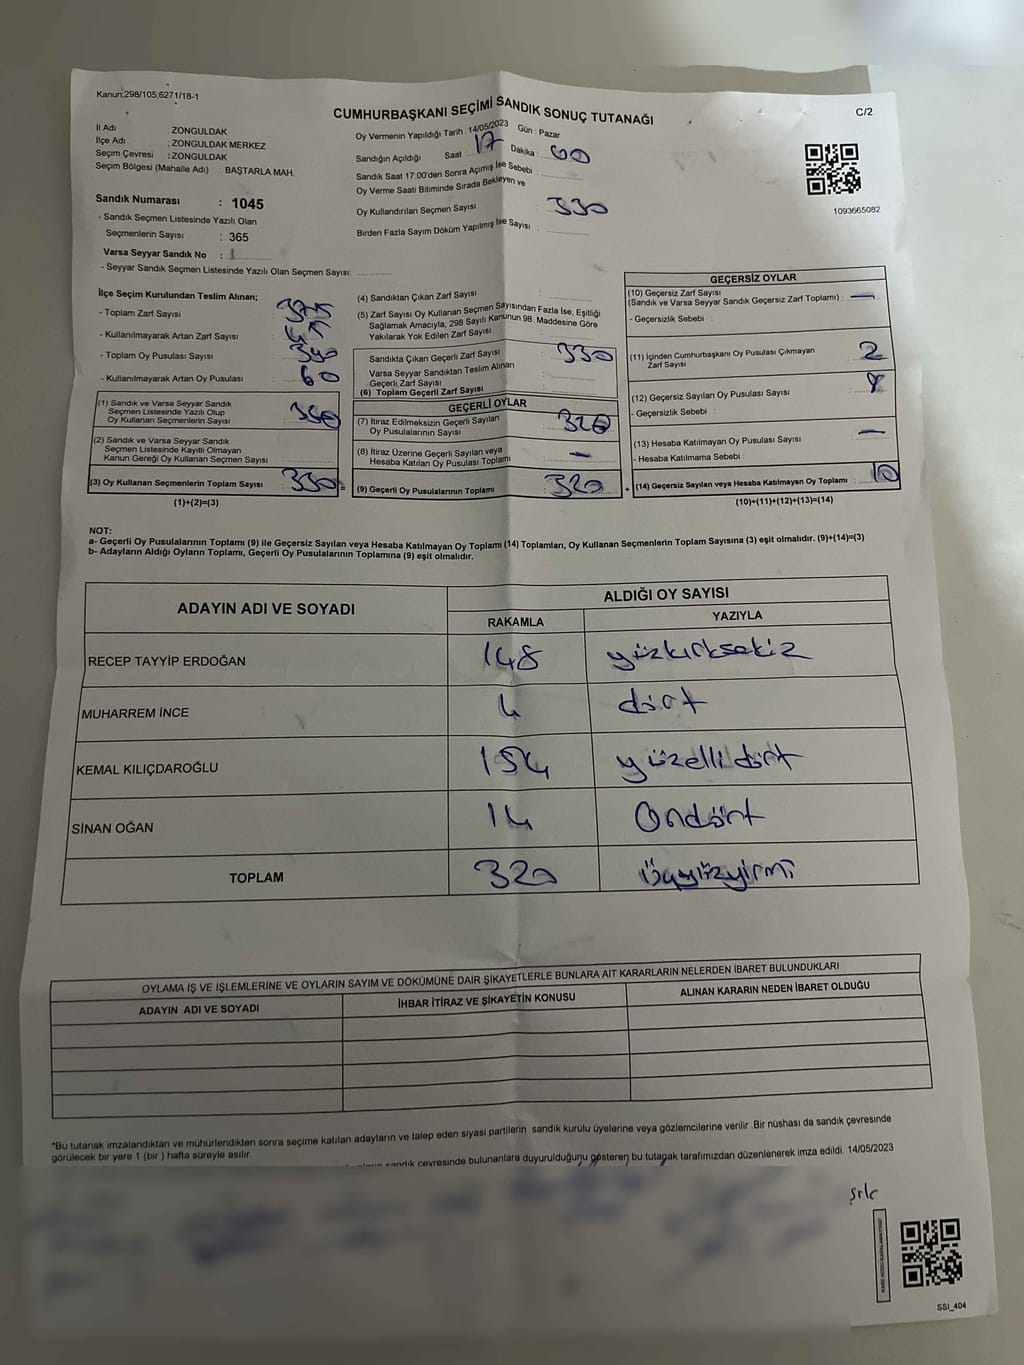 Kanun;298/105,6271/18-1
CUMHURBAŞKANI SEÇİMİ SANDIK SONUÇ TUTANAĞI
C/2
İl Adı ZONGULDAK
İlçe Adı : ZONGULDAK MERKEZ
Seçim Çevresi : ZONGULDAK
Seçim Bölgesi (Mahalle Adı) : BAŞTARLA MAH.
Sandık Numarası : 1045
- Sandık Seçmen Listesinde Yazılı Olan
Seçmenlerin Sayısı : 365
Varsa Seyyar Sandık No :
- Seyyar Sandık Seçmen Listesinde Yazılı Olan Seçmen Sayısı:
Oy Vermenin Yapıldığı Tarih : 14/05/2023 Gün : Pazar
Sandığın Açıldığı Saat 17 Dakika : 00
Sandık Saat 17:00'den Sonra Açımış İse Sebebi :
Oy Verme Saati Bitiminde Sırada Bekleyen ve
Oy Kullandırılan Seçmen Sayısı : 330
Birden Fazla Sayım Döküm Yapılmış İse Sayısı :
1093665082
İlçe Seçim Kurulundan Teslim Alınan;
- Toplam Zarf Sayısı : 375
- Kullanılmayarak Artan Zarf Sayısı :
- Toplam Oy Pusulası Sayısı :
- Kullanılmayarak Artan Oy Pusulası : 60
(1) Sandık ve Varsa Seyyar Sandık
Seçmen Listesinde Yazılı Olup
Oy Kullanan Seçmenlerin Sayısı :
(2) Sandık ve Varsa Seyyar Sandık
Seçmen Listesinde Kayıtlı Olmayan
Kanun Gereği Oy Kullanan Seçmen Sayısı :
(3) Oy Kullanan Seçmenlerin Toplam Sayısı : 330 =
(1)+(2)=(3)
(4) Sandıktan Çıkan Zarf Sayısı :
(5) Zarf Sayısı Oy Kullanan Seçmen Sayısından Fazla İse, Eşitliği
Sağlamak Amacıyla, 298 Sayılı Kanunun 98. Maddesine Göre
Yakılarak Yok Edilen Zarf Sayısı :
Sandıkta Çıkan Geçerli Zarf Sayısı : 330
Varsa Seyyar Sandıktan Teslim Alınan
Geçerli Zarf Sayısı :
(6) Toplam Geçerli Zarf Sayısı :
GEÇERLİ OYLAR
(7) İtiraz Edilmeksizin Geçerli Sayılan
Oy Pusulalarının Sayısı : 320
(8) İtiraz Üzerine Geçerli Sayılan veya
Hesaba Katılan Oy Pusulası Toplamı : -
(9) Geçerli Oy Pusulalarının Toplamı : 320 +
GEÇERSİZ OYLAR
(10) Geçersiz Zarf Sayısı
(Sandık ve Varsa Seyyar Sandık Geçersiz Zarf Toplamı) : -
- Geçersizlik Sebebi :
(11) İçinden Cumhurbaşkanı Oy Pusulası Çıkmayan
Zarf Sayısı : 2
(12) Geçersiz Sayılan Oy Pusulası Sayısı : 8
- Geçersizlik Sebebi :
(13) Hesaba Katılmayan Oy Pusulası Sayısı : -
- Hesaba Katılmama Sebebi :
(14) Geçersiz Sayılan veya Hesaba Katılmayan Oy Toplamı : 10
(10)+(11)+(12)+(13)=(14)
NOT:
a- Geçerli Oy Pusulalarının Toplamı (9) ile Geçersiz Sayılan veya Hesaba Katılmayan Oy Toplamı (14) Toplamları, Oy Kullanan Seçmenlerin Toplam Sayısına (3) eşit olmalıdır. (9)+(14)=(3)
b- Adayların Aldığı Oyların Toplamı, Geçerli Oy Pusulalarının Toplamına (9) eşit olmalıdır.
ADAYIN ADI VE SOYADI ALDIĞI OY SAYISI
RAKAMLA YAZIYLA
RECEP TAYYİP ERDOĞAN 148 yüzkırksekiz
MUHARREM İNCE 4 dört
KEMAL KILIÇDAROĞLU 154 yüzellidört
SİNAN OĞAN 14 Ondört
TOPLAM 320 üçyüzyirmi
OYLAMA İŞ VE İŞLEMLERİNE VE OYLARIN SAYIM VE DÖKÜMÜNE DAİR ŞİKAYETLERLE BUNLARA AİT KARARLARIN NELERDEN İBARET BULUNDUKLARI
ADAYIN ADI VE SOYADI İHBAR İTİRAZ VE ŞİKAYETİN KONUSU ALINAN KARARIN NEDEN İBARET OLDUĞU
*Bu tutanak imzalandıktan ve mühürlendikten sonra seçime katılan adayların ve talep eden siyasi partilerin sandık kurulu üyelerine veya gözlemcilerine verilir .Bir nüshası da sandık çevresinde
görülecek bir yere 1 (bir ) hafta süreyle asılır.
sandık çevresinde bulunanlara duyurulduğunu gösteren bu tutanak tarafımızdan düzenlenerek imza edildi. 14/05/2023
SSI_404